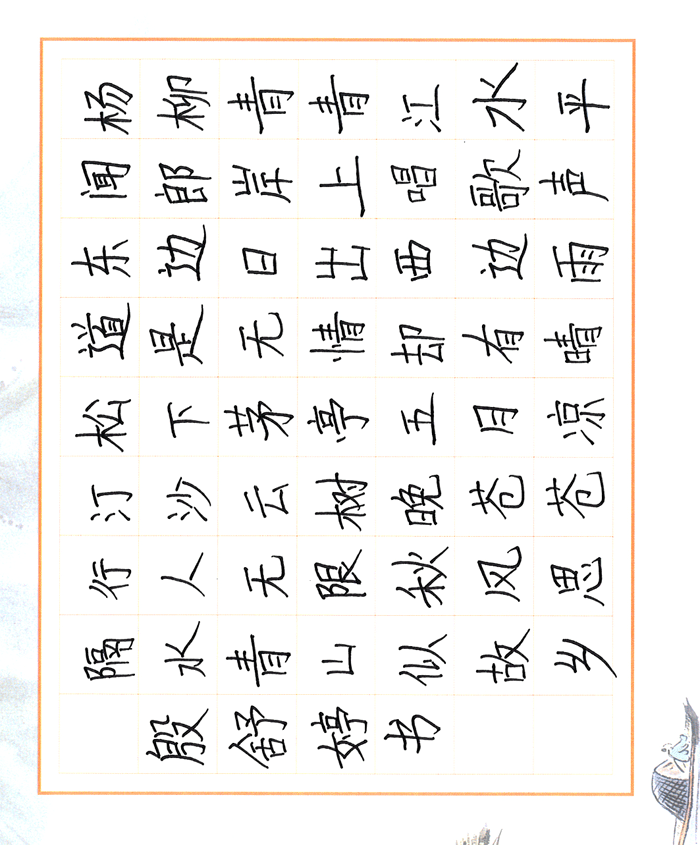 杨柳青青江水平
闻郎岸上唱歌声
东边日出西边雨
道是无情却有晴
松下茅亭五月凉
汀沙云树晚苍苍
行人无限秋风思
隔水青山似故乡
殷舒婷书